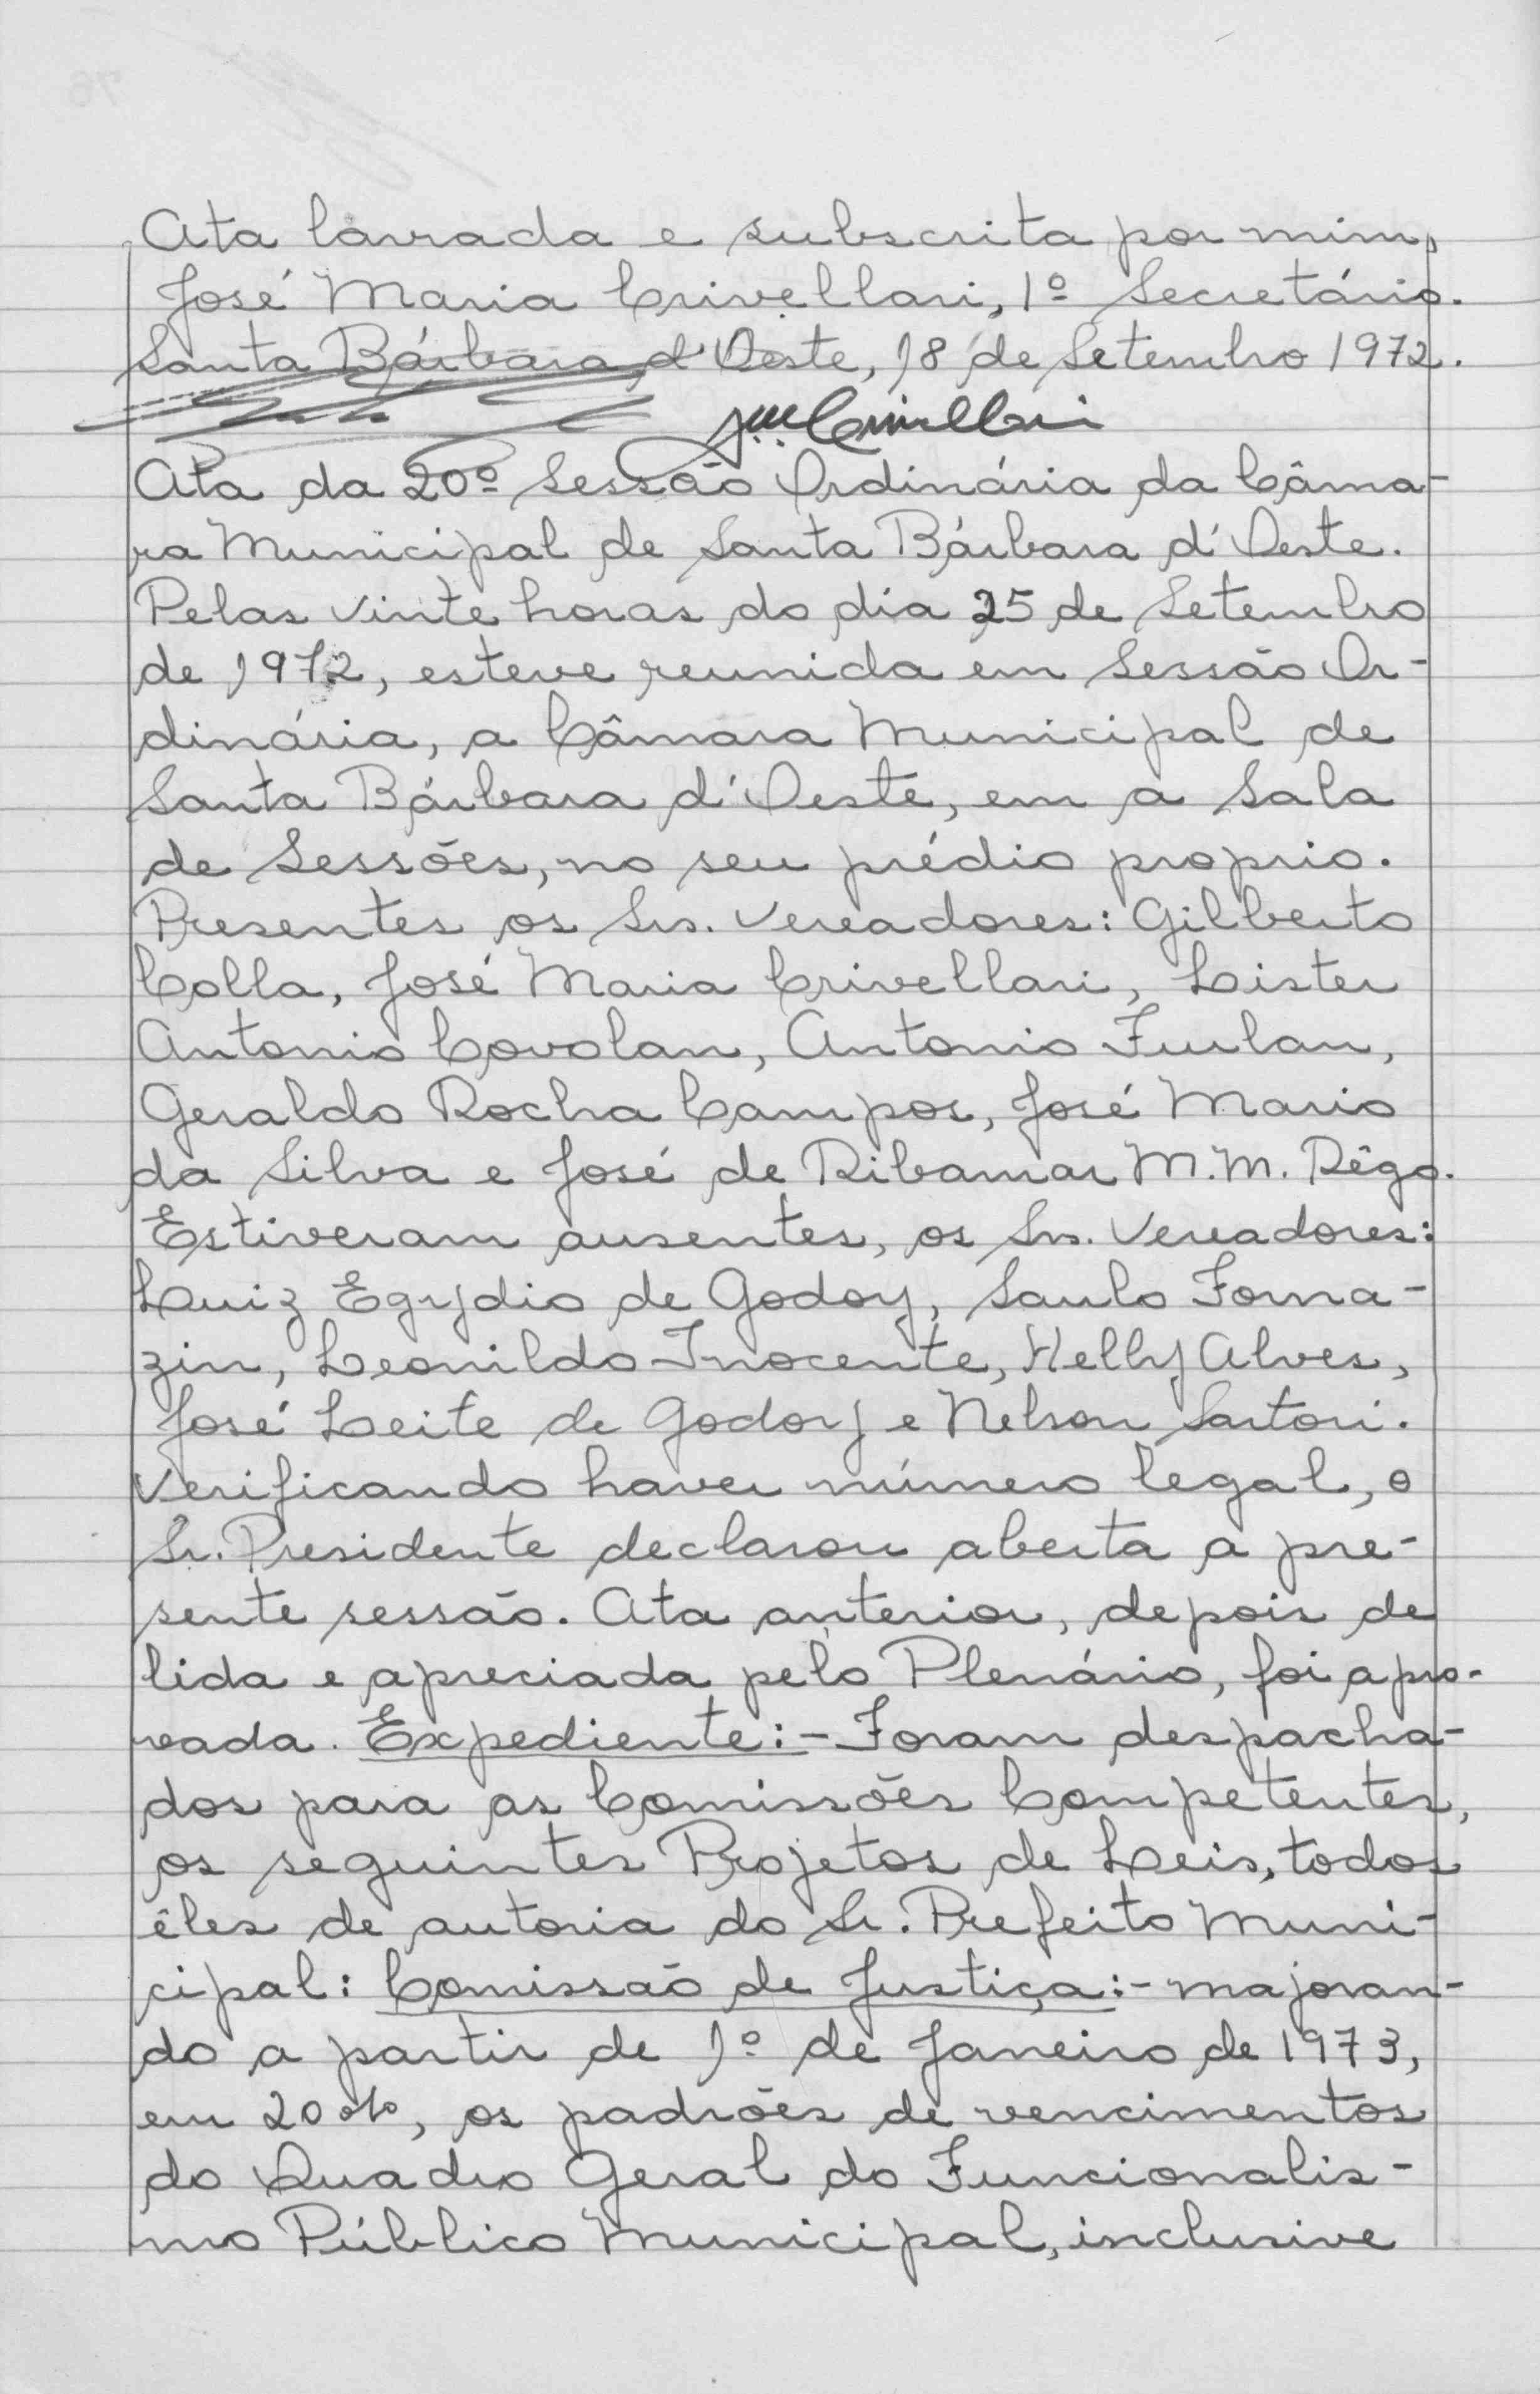 Ata lavrada e subscrita por mim,
José Maria Crivellari, 1º Secretário.
Santa Bárbara d'Oeste, 18 de Setembro 1972.
Ata da 20º Sessão Ordinária da Câma-
ra Municipal de Santa Bárbara d'Oeste.
Pelas vinte horas do dia 25 de Setembro
de 1972, esteve reunida em Sessão Or-
dinária, a Câmara Municipal de
Santa Bárbara d'Oeste, em a Sala
de Sessões, no seu prédio proprio.
Presentes os Srs. Vereadores: Gilberto
Colla, José Maria Crivellari, Lister
Antonio Covolan, Antonio Furlan,
Geraldo Rocha Campos, José Mario
da Silva e José de Ribamar M. M. Rêgo.
Estiveram ausentes, os Srs. Vereadores:
Luiz Egydio de Godoy, Saulo Forna-
zin, Leonildo Inocente, Helly Alves,
José Leite de Godoy e Nelson Sartori.
Verificando haver número legal, o
Sr. Presidente declarou aberta a pre-
sente sessão. Ata anterior, depois de
lida e apreciada pelo Plenário, foi apro-
vada. Expediente:- Foram despacha-
dos para as Comissões Competentes,
os seguintes Projetos de Leis, todos
êles de autoria do Sr. Prefeito Muni-
cipal: Comissão de Justiça:- majoran-
do a partir de 1º de Janeiro de 1973,
em 20%, os padrões de vencimentos
do Quadro Geral do Funcionalis-
mo Público Municipal, inclusive